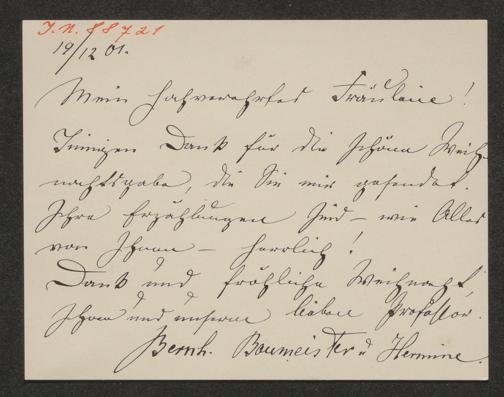 I. N. 88721
19/12 01.
Mein hochverehrtes Fräulein!
Innigen Dank für die schöne Weih-
nachtsgabe, die Sie mir gesendet.
Ihre Erzählungen sind – wie Alles
von Ihnen – herrlich!
Dank und fröhliche Weihnacht
Ihnen und unserm lieben Professor.
Bernh. Baumeister u Hermine.